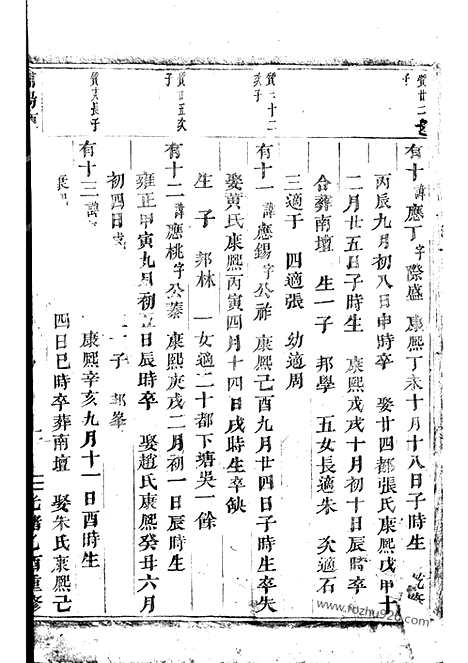 質廿二
子
有十諱應丁字際盛 康熙丁未十月十八日子時生
丙辰九月初八日申時卒 娶廿四都張氏康熙戊申十
二月廿五日子時生 康熙戊戌十月初十日辰時卒
合葬南壇 生一子 邦學 五女長適朱 次適石
三適于 四適張 幼適周
質三十二
次子
有十一諱應錫字公祚 康熙己酉九月廿四日子時生卒失
娶黄氏康熙丙寅四月十四日戌時生卒缺
生 子 邦林 一女適二十都下塘吳一餘
質廿五次
子
有十二諱應桃字公蓁 康熙庚戌二月初一日辰時生
雍正甲寅九月初五日辰時卒 娶趙氏康熙癸丑六月
初四日 子 邦峯
長子
有十三諱 康熙辛亥九月十一日酉時生
四日巳時卒葬南壇 娶朱氏康熙己
光緒乙酉重修
www.fozhu920.com